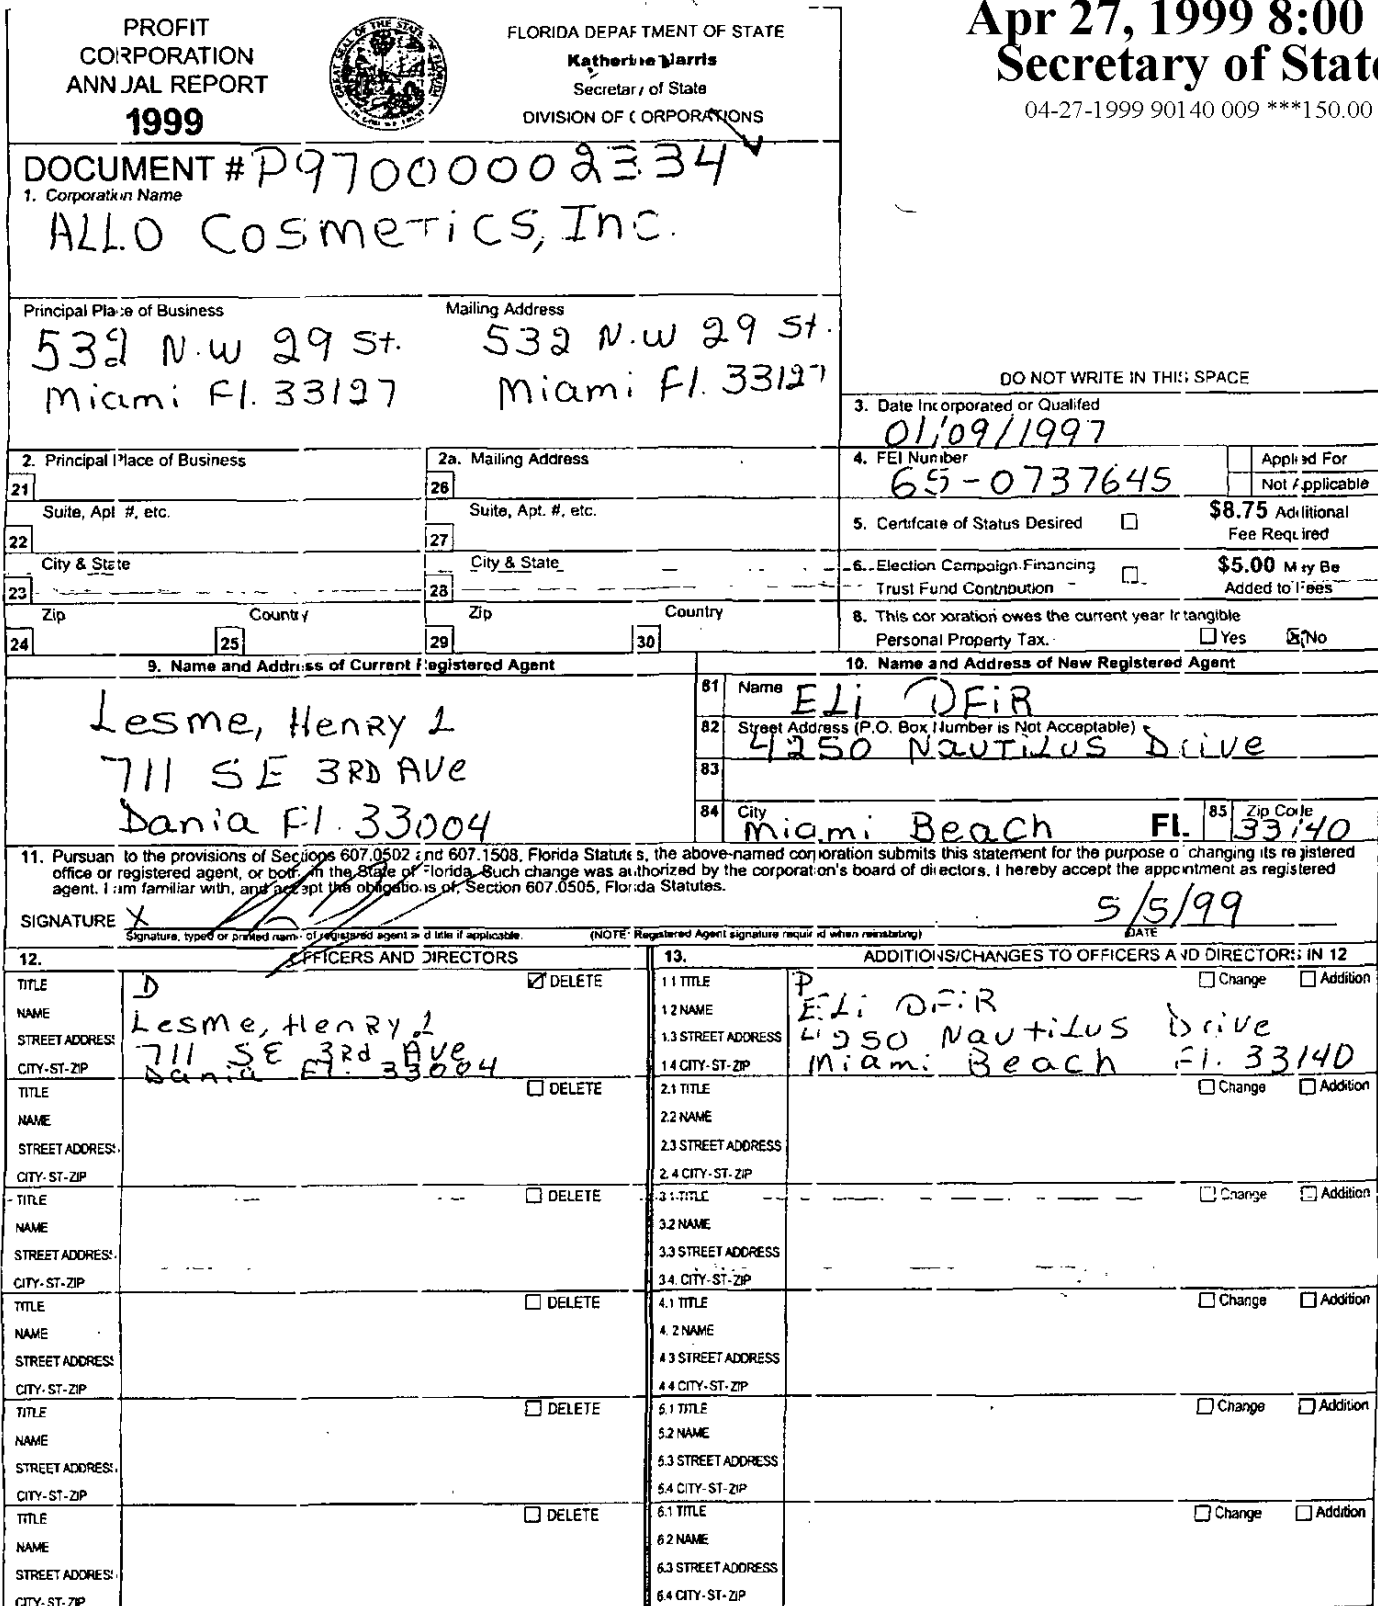 PROFIT
CORPORATION
ANNUAL REPORT
1999
FLORIDA DEPARTMENT OF STATE
Katherine Harris
Secretary of State
DIVISION OF CORPORATIONS
Apr 27, 1999 8:00
Secretary of State
04-27-1999 90140 009 ***150.00
DOCUMENT # P97000002334
1. Corporation Name
ALLO Cosmetics, Inc.
Principal Place of Business
532 N.W 29 St.
Miami Fl. 33127
Mailing Address
532 N.W 29 St.
Miami Fl. 33127
DO NOT WRITE IN THIS SPACE
3. Date Incorporated or Qualifed
01/09/1997
2. Principal Place of Business
21
Suite, Apt #, etc.
22
City & State
23
Zip Country
24 25
2a. Mailing Address
26
Suite, Apt. #, etc.
27
City & State
28
Zip Country
29 30
4. FEI Number
65-0737645
Applied For
Not Applicable
5. Certifcate of Status Desired
$8.75 Additional
Fee Required
6. Election Campaign Financing
Trust Fund Contribution
$5.00 May Be
Added to Fees
8. This corporation owes the current year Intangible
Personal Property Tax. Yes No
9. Name and Address of Current Registered Agent
Lesme, Henry L
711 SE 3RD AVe
Dania Fl. 33004
10. Name and Address of New Registered Agent
81 Name ELi DFiR
82 Street Address (P.O. Box Number is Not Acceptable)
4250 Nautilus Drive
83
84 City Miami Beach FL 85 Zip Code 33140
11. Pursuant to the provisions of Sections 607.0502 and 607.1508, Florida Statutes, the above-named corporation submits this statement for the purpose of changing its registered
office or registered agent, or both, in the State of Florida. Such change was authorized by the corporation's board of directors. I hereby accept the appointment as registered
agent. I am familiar with, and accept the obligations of, Section 607.0505, Florida Statutes.
SIGNATURE X
5/5/99
Signature, typed or printed name of registered agent and title if applicable. (NOTE: Registered Agent signature required when reinstating) DATE
12. OFFICERS AND DIRECTORS
TITLE D DELETE
NAME Lesme, Henry L
STREET ADDRESS 711 SE 3Rd Ave
CITY-ST-ZIP Dania Fl. 33004
TITLE DELETE
NAME
STREET ADDRESS
CITY-ST-ZIP
TITLE DELETE
NAME
STREET ADDRESS
CITY-ST-ZIP
TITLE DELETE
NAME
STREET ADDRESS
CITY-ST-ZIP
TITLE DELETE
NAME
STREET ADDRESS
CITY-ST-ZIP
TITLE DELETE
NAME
STREET ADDRESS
CITY-ST-ZIP
13. ADDITIONS/CHANGES TO OFFICERS AND DIRECTORS IN 12
1.1 TITLE P Change Addition
1.2 NAME ELi DFiR
1.3 STREET ADDRESS 4250 Nautilus Drive
1.4 CITY-ST-ZIP Miami Beach Fl. 33140
2.1 TITLE Change Addition
2.2 NAME
2.3 STREET ADDRESS
2.4 CITY-ST-ZIP
3.1 TITLE Change Addition
3.2 NAME
3.3 STREET ADDRESS
3.4. CITY-ST-ZIP
4.1 TITLE Change Addition
4.2 NAME
4.3 STREET ADDRESS
4.4 CITY-ST-ZIP
5.1 TITLE Change Addition
5.2 NAME
5.3 STREET ADDRESS
5.4 CITY-ST-ZIP
6.1 TITLE Change Addition
6.2 NAME
6.3 STREET ADDRESS
6.4 CITY-ST-ZIP